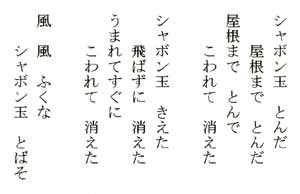 シャボン玉 とんだ
屋根まで とんだ
屋根まで とんで
こわれて 消えた
シャボン玉 きえた
飛ばずに 消えた
うまれてすぐに
こわれて 消えた
風 風 ふくな
シャボン玉 とばそ